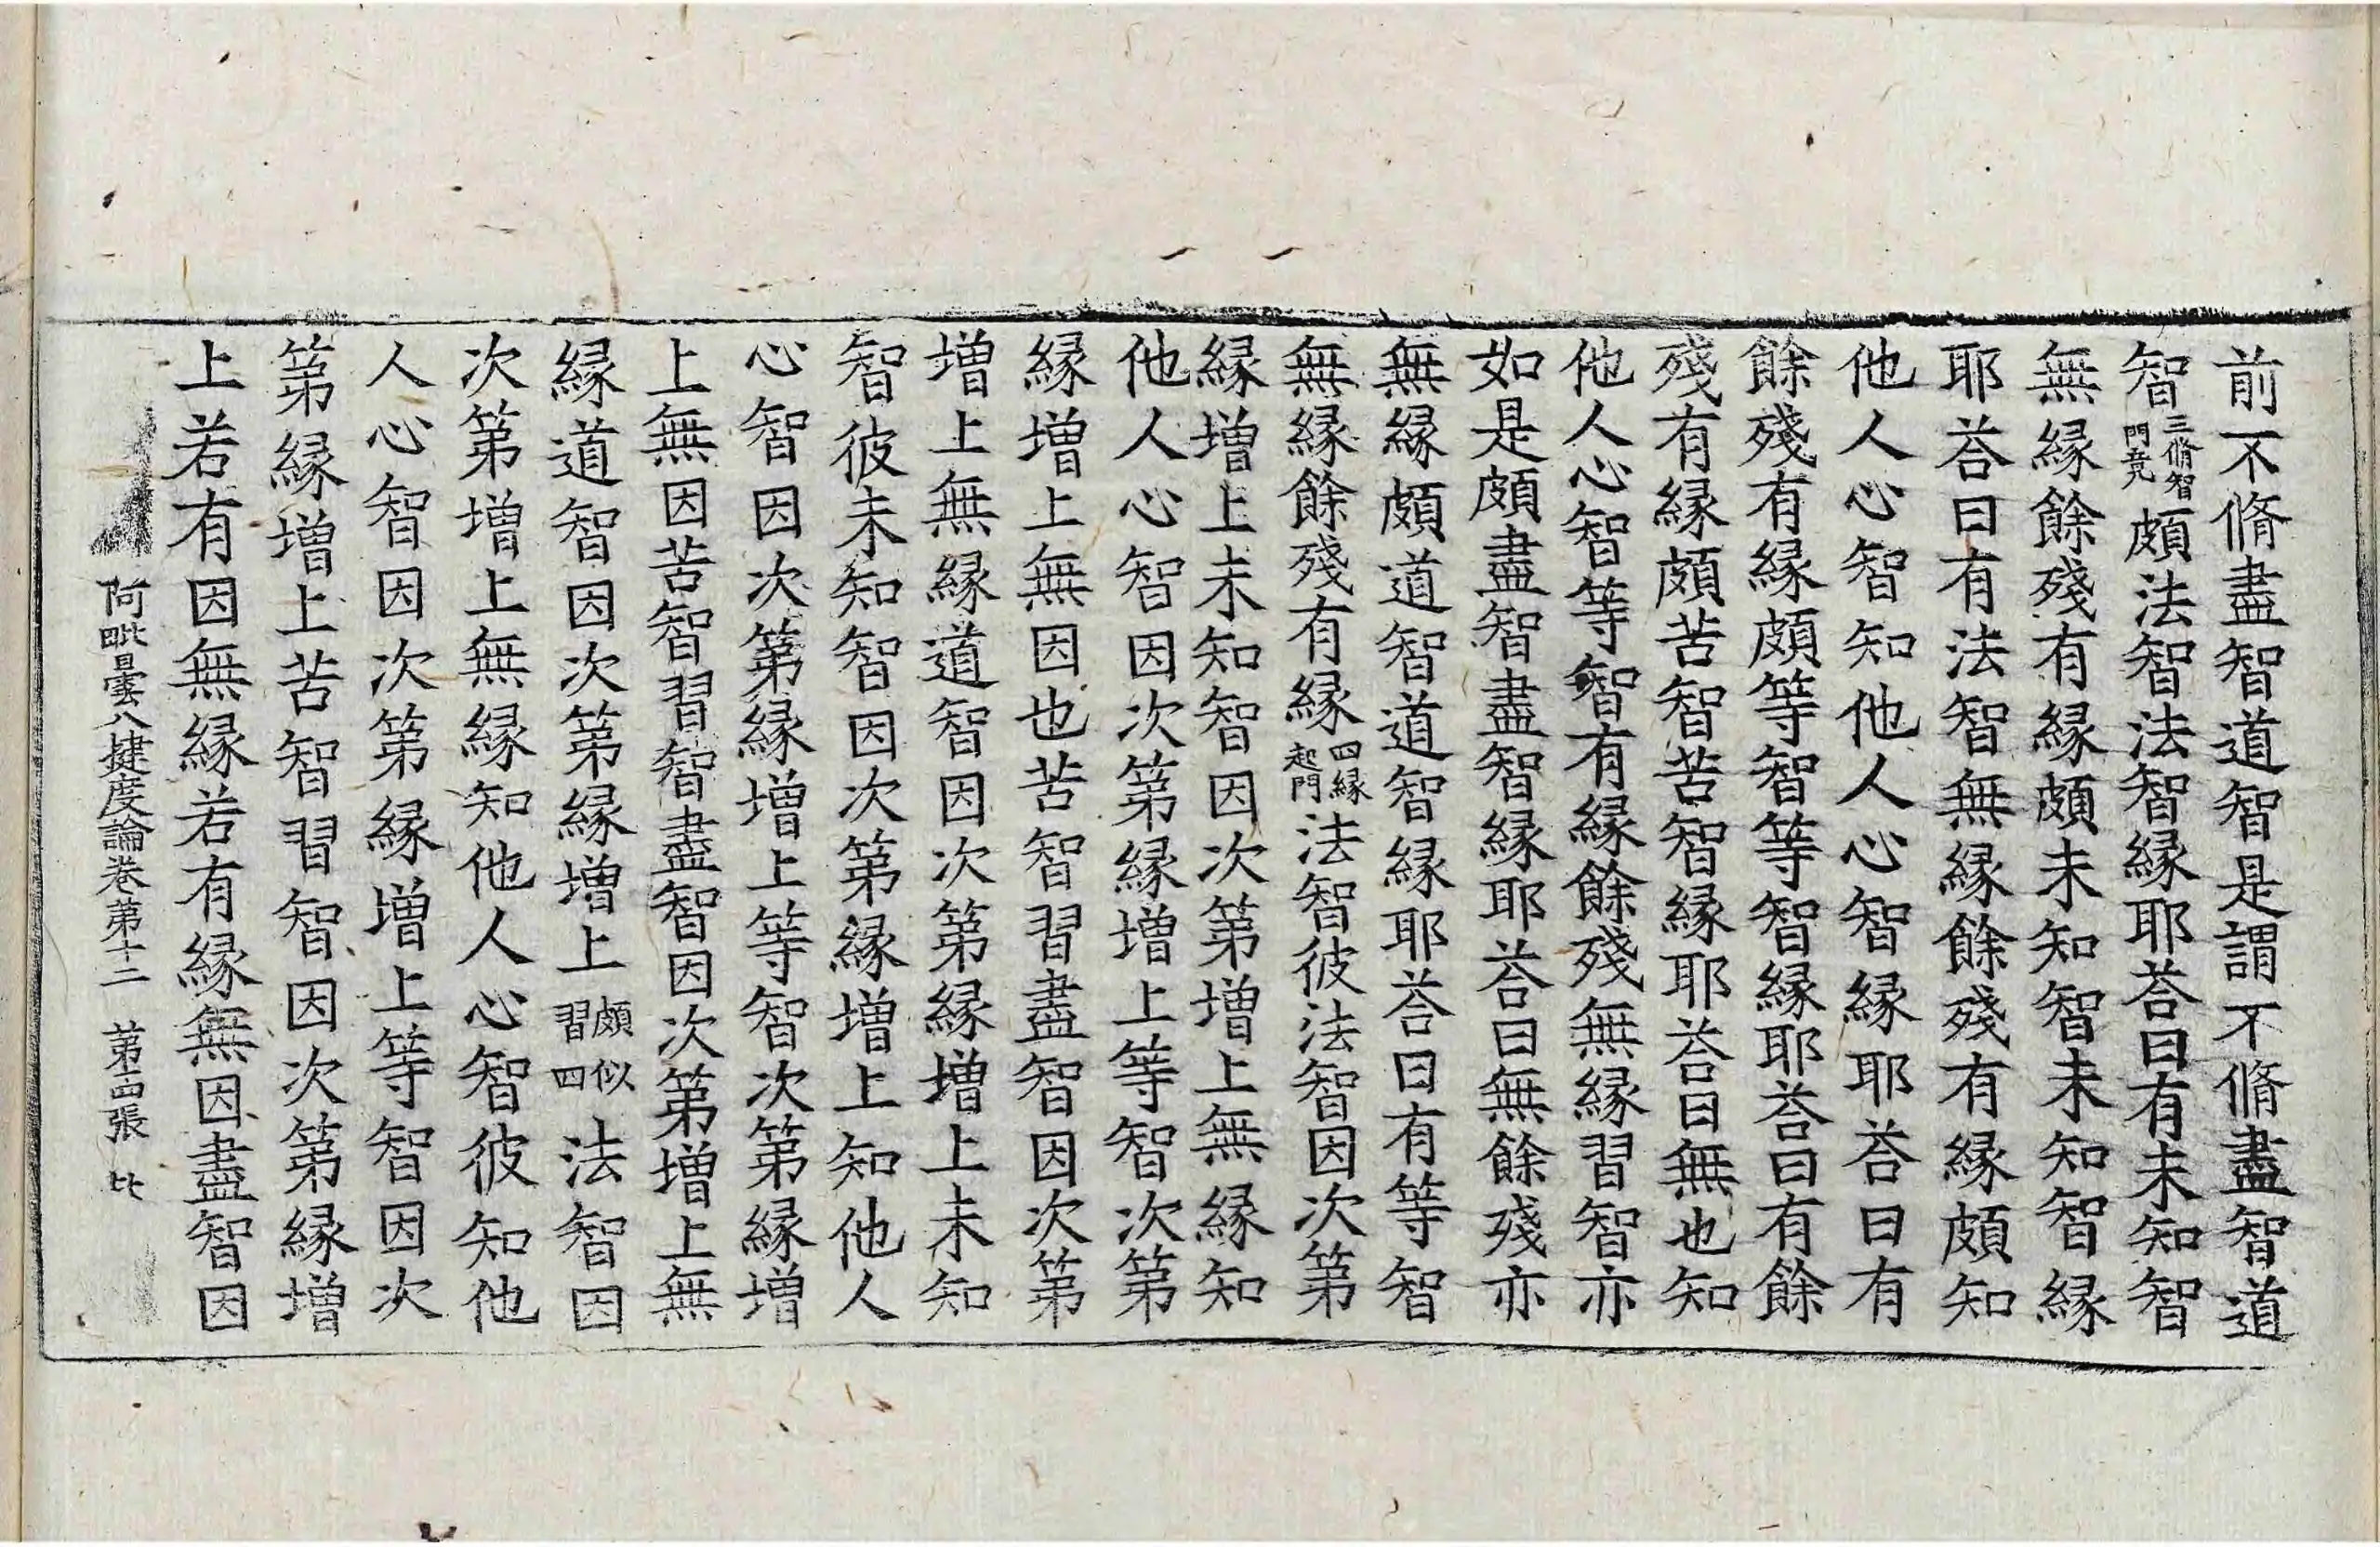 前不脩盡智道智是謂不脩盡智道
智三脩智門竟頗法智法智緣耶荅曰有未知智
無緣餘殘有緣頗未知智未知智緣
耶荅曰有法智無緣餘殘有緣頗知
他人心智知他人心智緣耶荅曰有
餘殘有緣頗等智等智緣耶荅曰有餘
殘有緣頗苦智苦智緣耶荅曰無也知
他人心智等智有緣餘殘無緣習智亦
如是頗盡智盡智緣耶荅曰無餘殘亦
無緣頗道智道智緣耶荅曰有等智
無緣餘殘有緣四緣起門法智彼法智因次第
緣增上未知智因次第增上無緣知
他人心智因次第緣增上等智次第
緣增上無因也苦智習盡智因次第
增上無緣道智因次第緣增上未知
智彼未知智因次第緣增上知他人
心智因次第緣增上等智次第緣增
上無因苦智習智盡智因次第增上無
緣道智因次第緣增上頗似習四法智因
次第增上無緣知他人心智彼知他
人心智因次第緣增上等智因次
第緣增上苦智習智因次第緣增
上若有因無緣若有緣無因盡智因
阿毗曇八揵度論卷第十二 第十四張 比